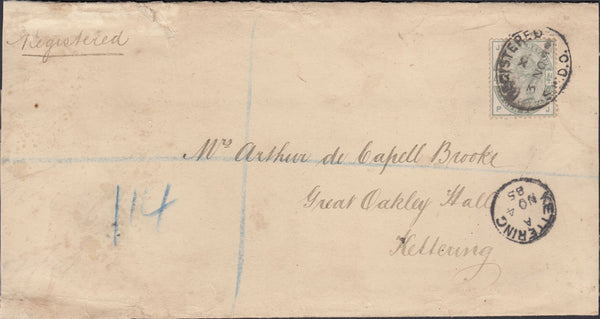 Registered
REGISTERED
NO
Mrs Arthur de Capell Brooke
Great Oakley Hall
Kettering
114
KETTERING
A
NO 4
85